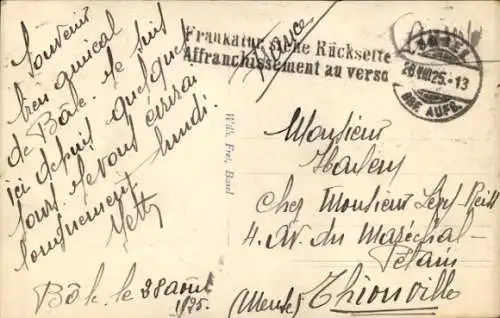 Souvenir
bien amical
de Bâle. Je suis
ici depuis quelques
jours. Je vous écrirai
longuement lundi.
Yetty
Bâle le 28 août
1925.
Frankatur siehe Rückseite
Affranchissement au verso
France
BASEL
28.VIII.25.-13
BRF. AUFG.
Wilh. Frei, Basel
Monsieur
chez Monsieur
4. Av. du Maréchal-
Pétain
Thionville